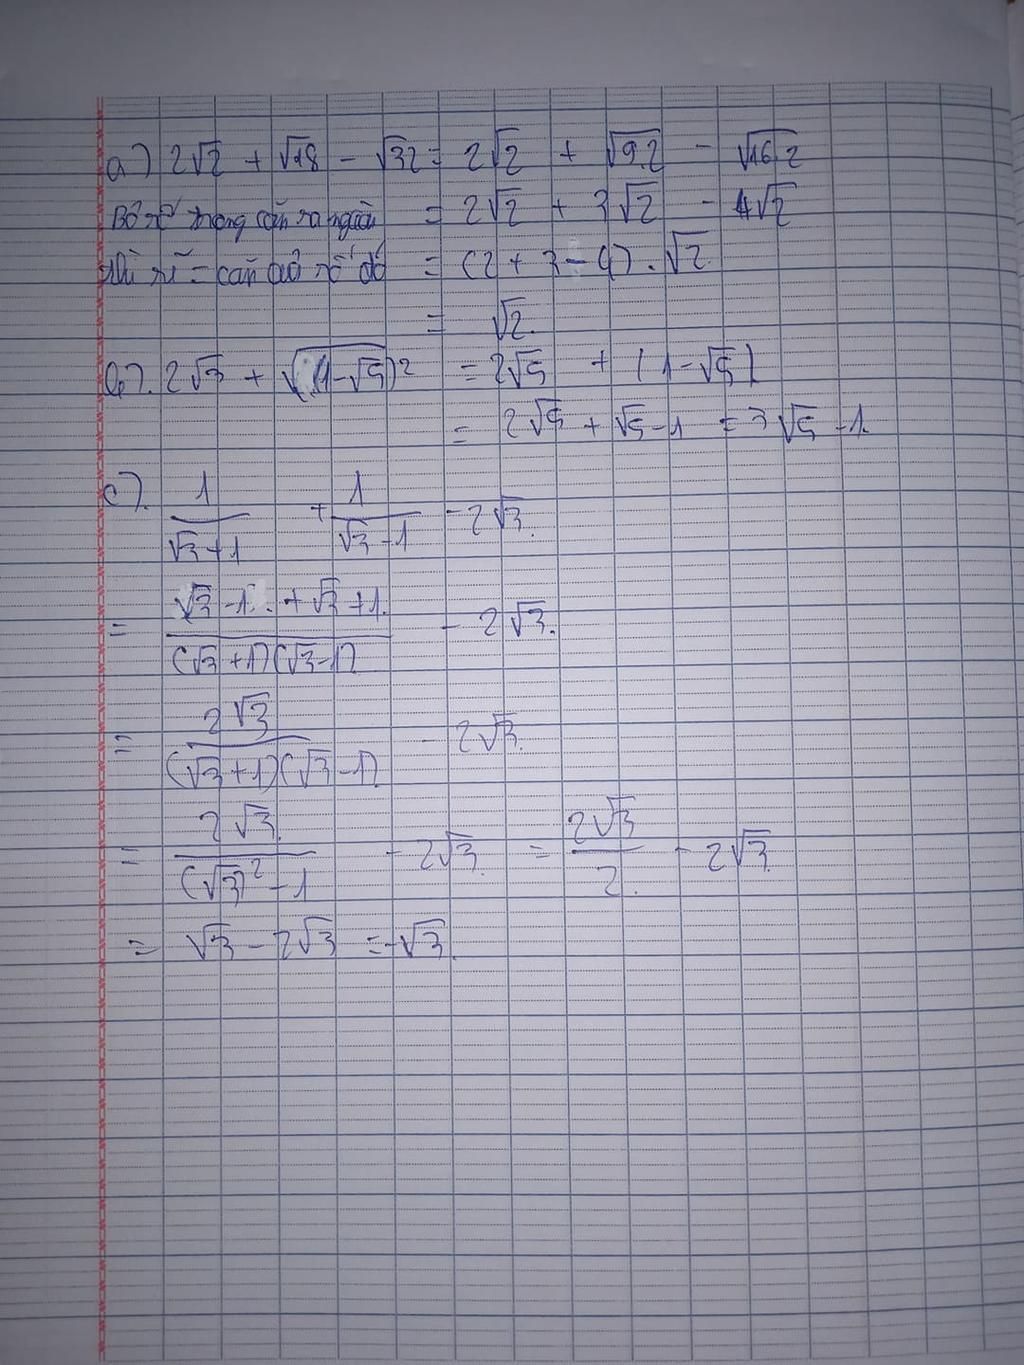 a) 2√2 + √18 - √32 = 2√2 + √9.2 - √16.2
Bỏ số trong căn ra ngoài = 2√2 + 3√2 - 4√2
thì số = căn của số đó = (2 + 3 - 4) . √2
= √2.
b). 2√3 + √(1-√5)² = 2√5 + |1-√5|
= 2√5 + √5-1 = 3√5 - 1.
c). 1/(√3+1) + 1/(√3-1) - 2√3.
= (√3 -1 + √3 +1)/((√3+1)(√3-1)) - 2√3.
= 2√3/((√3+1)(√3-1)) - 2√3.
= 2√3/((√3)²-1) - 2√3. = 2√3/2. - 2√3.
= √3 - 2√3 = -√3.